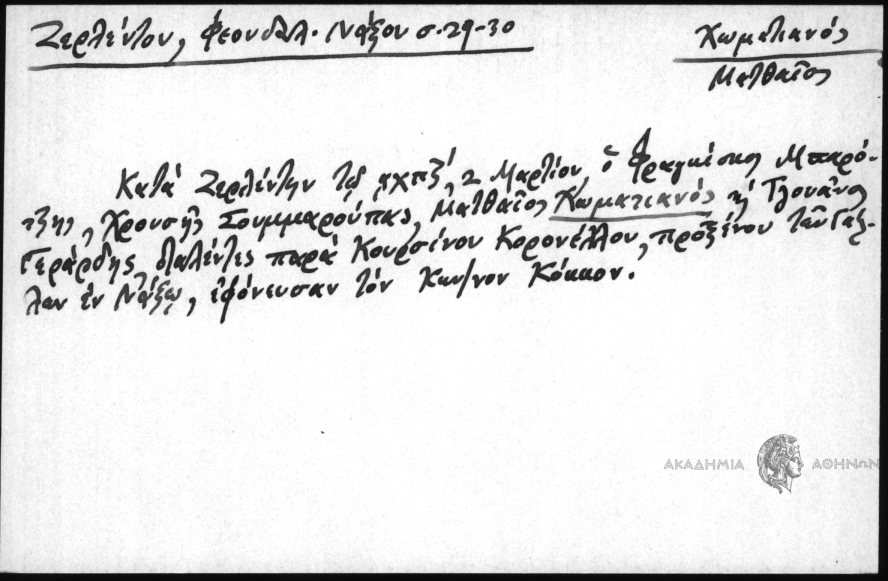 Ζερλέντου, Φεουδαλ. Νάξου σ. 29-30
Χωματιανός
Ματθαῖος
Κατά Ζερλέντην τῷ αχπζ´ 2 Μαρτίου, ὁ Φραγκίσκος Μπαρό-
τζης, Χρουσῆς Σουμμαρούπας, Ματθαῖος Χωματιανός κ Τζουάνος
Γεράρδης, βαλέντες παρά Κουρσίνου Κορονέλλου, προξένου τῶν Γάλ-
λων ἐν Νάξῳ, ἐφόνευσαν τόν Κων/νον Κόκκον.
ΑΚΑΔΗΜΙΑ ΑΘΗΝΩΝ